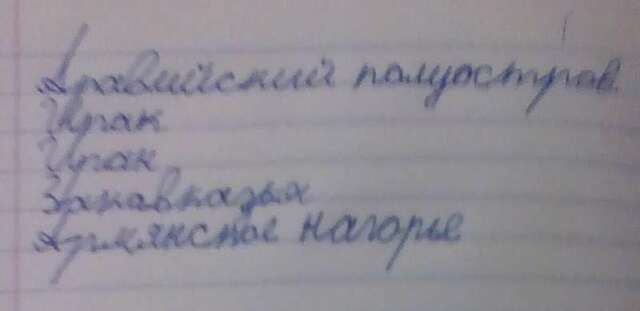 Аравийский полуостров
Ирак
Иран
Закавказья
Армянское нагорье